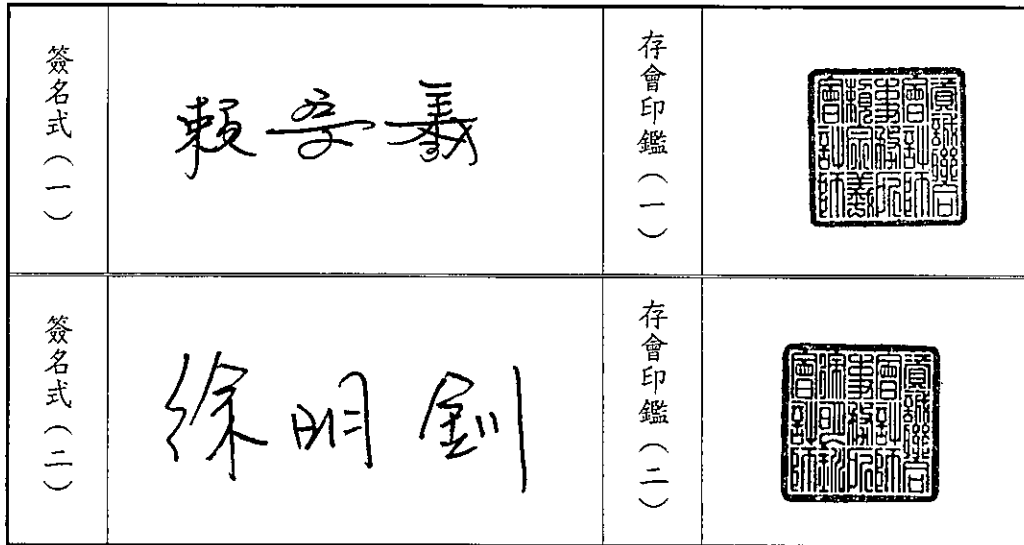 簽名式（一）
賴宗羲
存會印鑑（一）
資誠聯合
會計師
事務所
賴宗羲
會計師
簽名式（二）
徐明釧
存會印鑑（二）
資誠聯合
會計師
事務所
徐明釧
會計師